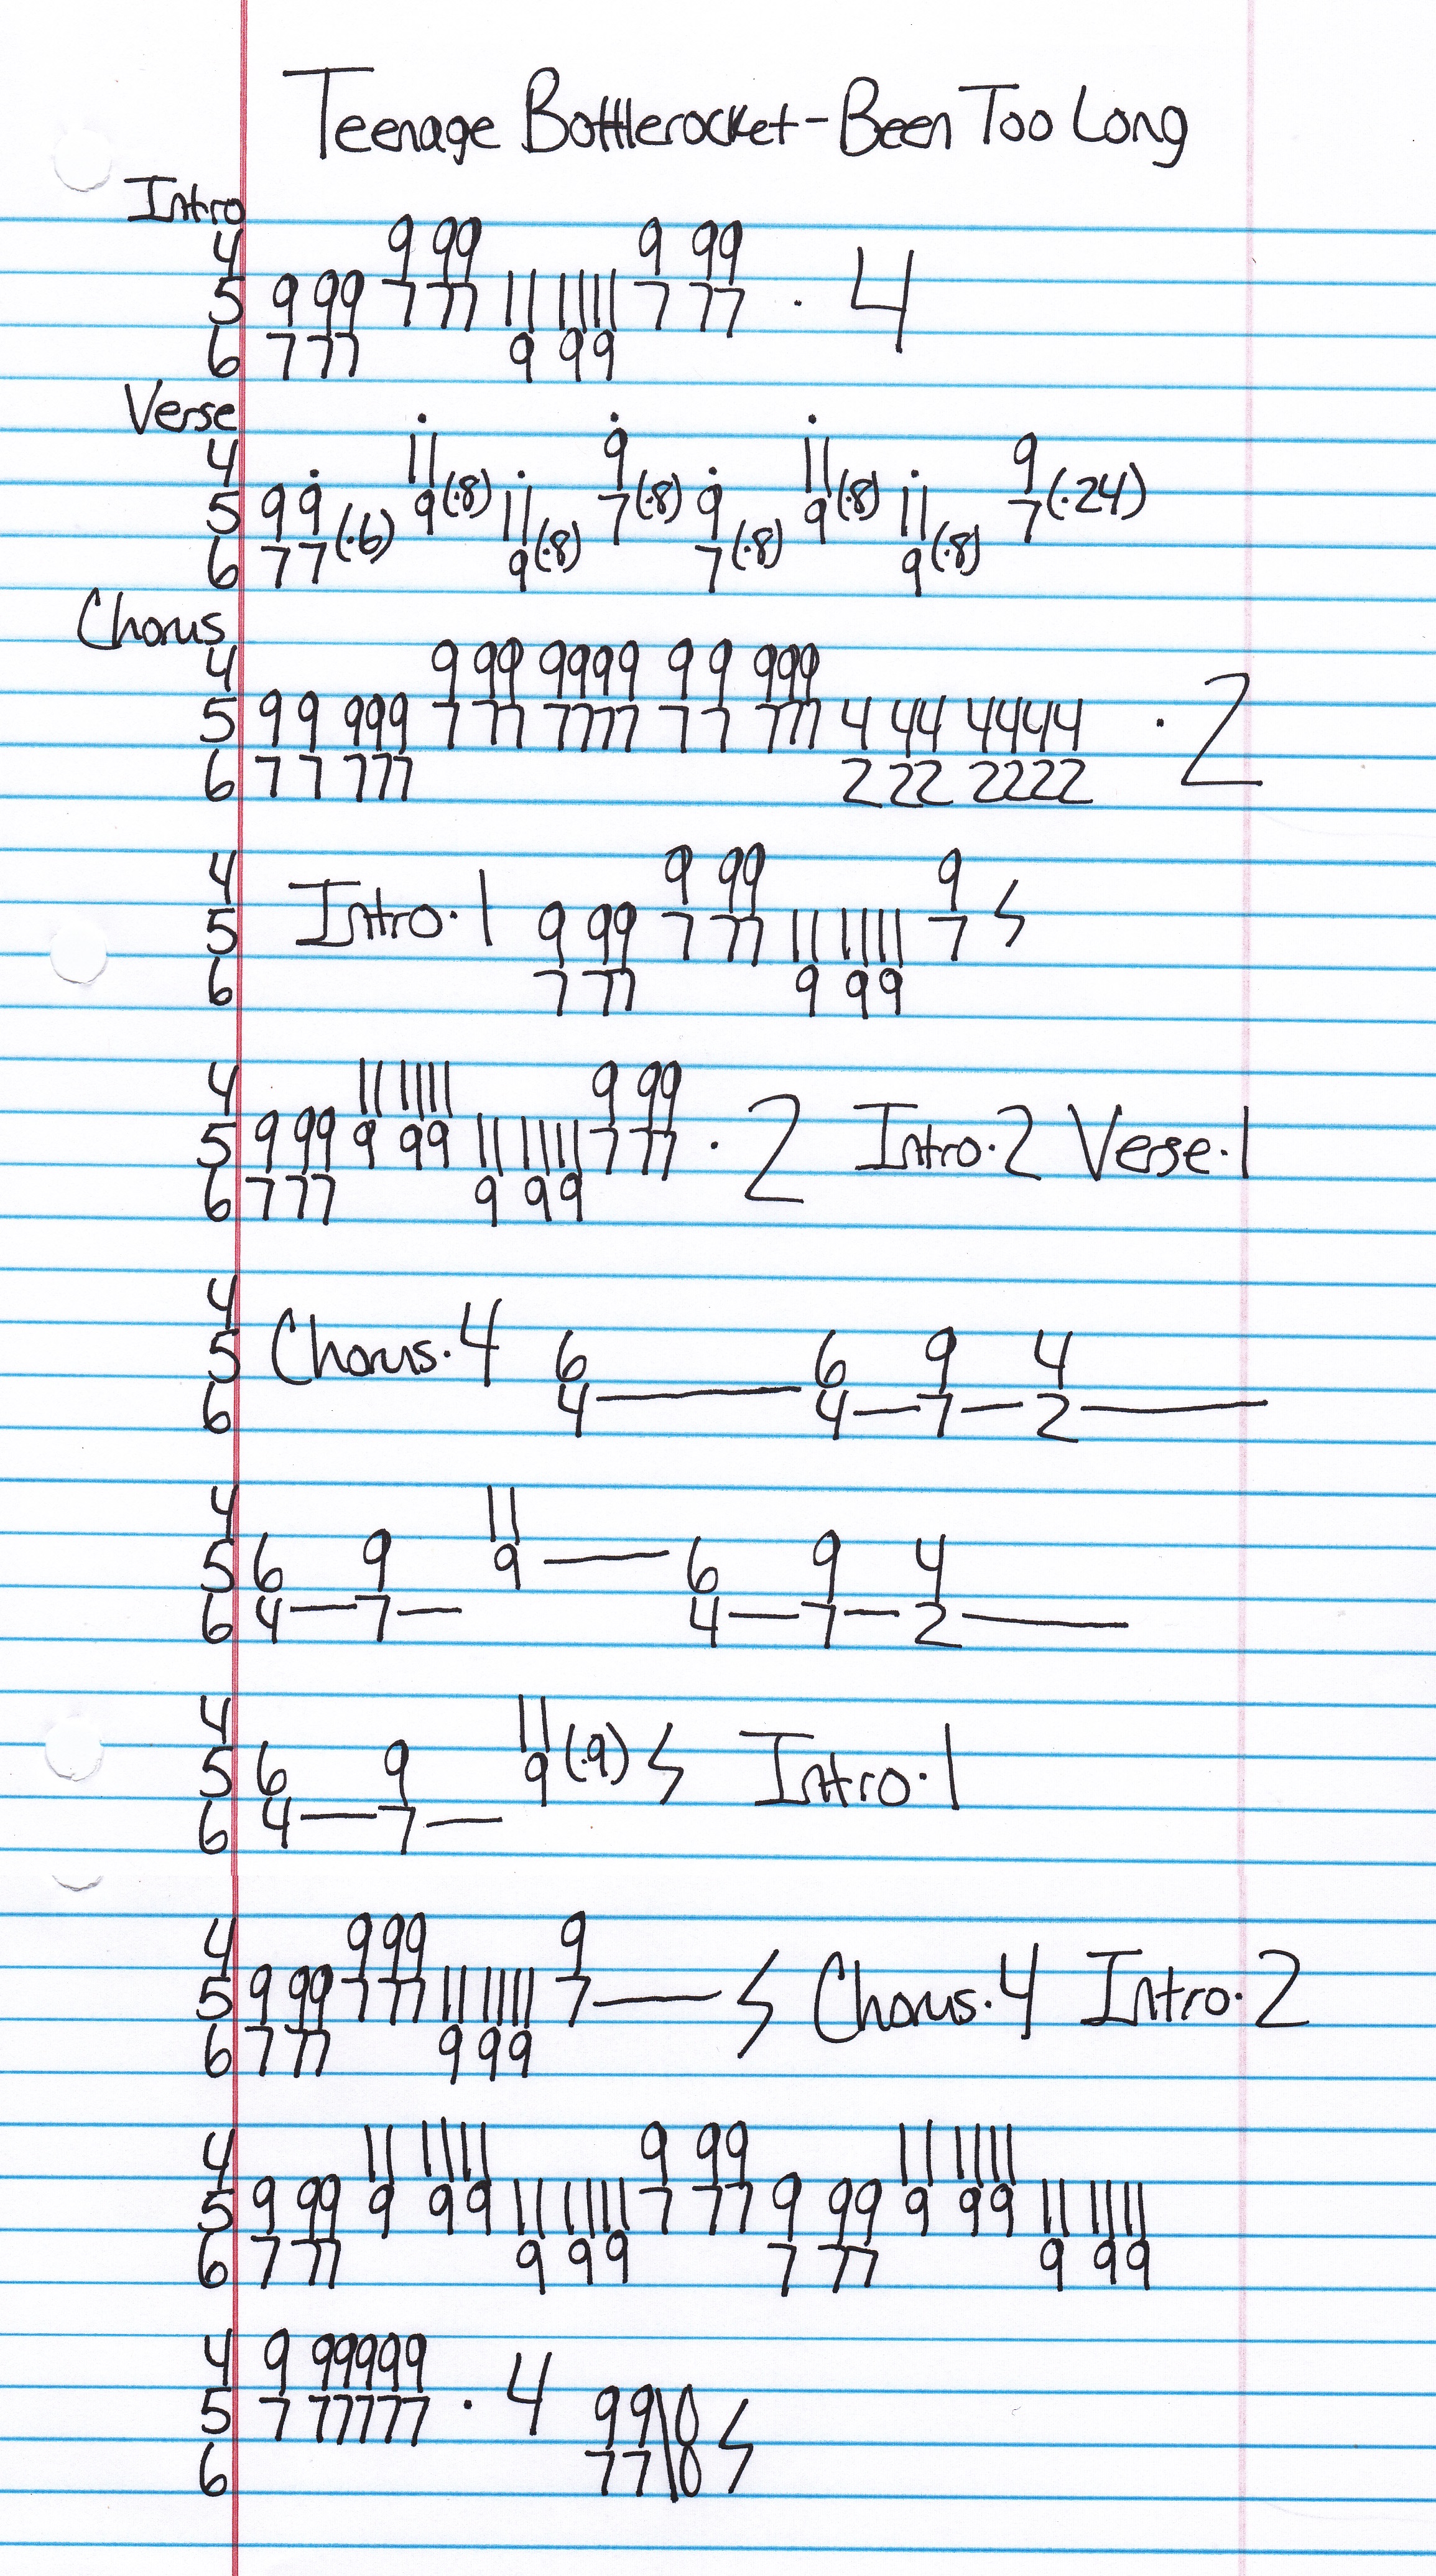 Teenage Bottlerocket - Been Too Long
Intro
4 9 99 9 99
5 9 99 7 77 11 11 11 7 77 · 4
6 7 77 9 99
Verse
4 11 9 11 9
5 9 9 9(·8) 11 7(·8) 9 9(·8) 11 7(·24)
6 7 7(·6) 9(·8) 7(·8) 9(·8)
Chorus
4 9 99 9999 9 9 999
5 9 9 999 7 77 7777 7 7 777 4 44 4444 · 2
6 7 7 777 2 22 2222
4 9 99 9
5 Intro·1 9 99 7 77 11 11 11 7
6 7 77 9 99
4 11 11 11 9 99
5 9 99 9 99 11 11 11 7 77 · 2 Intro·2 Verse·1
6 7 77 9 99
4
5 Chorus·4 6 6 9 4
6 4 — 4 — 7 — 2 —
4 11
5 6 9 9 — 6 9 4
6 4 — 7 — 4 — 7 — 2 —
4 11
5 6 9 9(·9) Intro·1
6 4 — 7 —
4 9 99 9
5 9 99 7 77 11 11 11 7 — Chorus·4 Intro·2
6 7 77 9 99
4 11 11 11 9 99 11 11 11
5 9 99 9 99 11 11 11 7 77 9 99 9 99 11 11 11
6 7 77 9 99 7 77 9 99
4 9 99999
5 7 77777 · 4 99\0
6 77\0